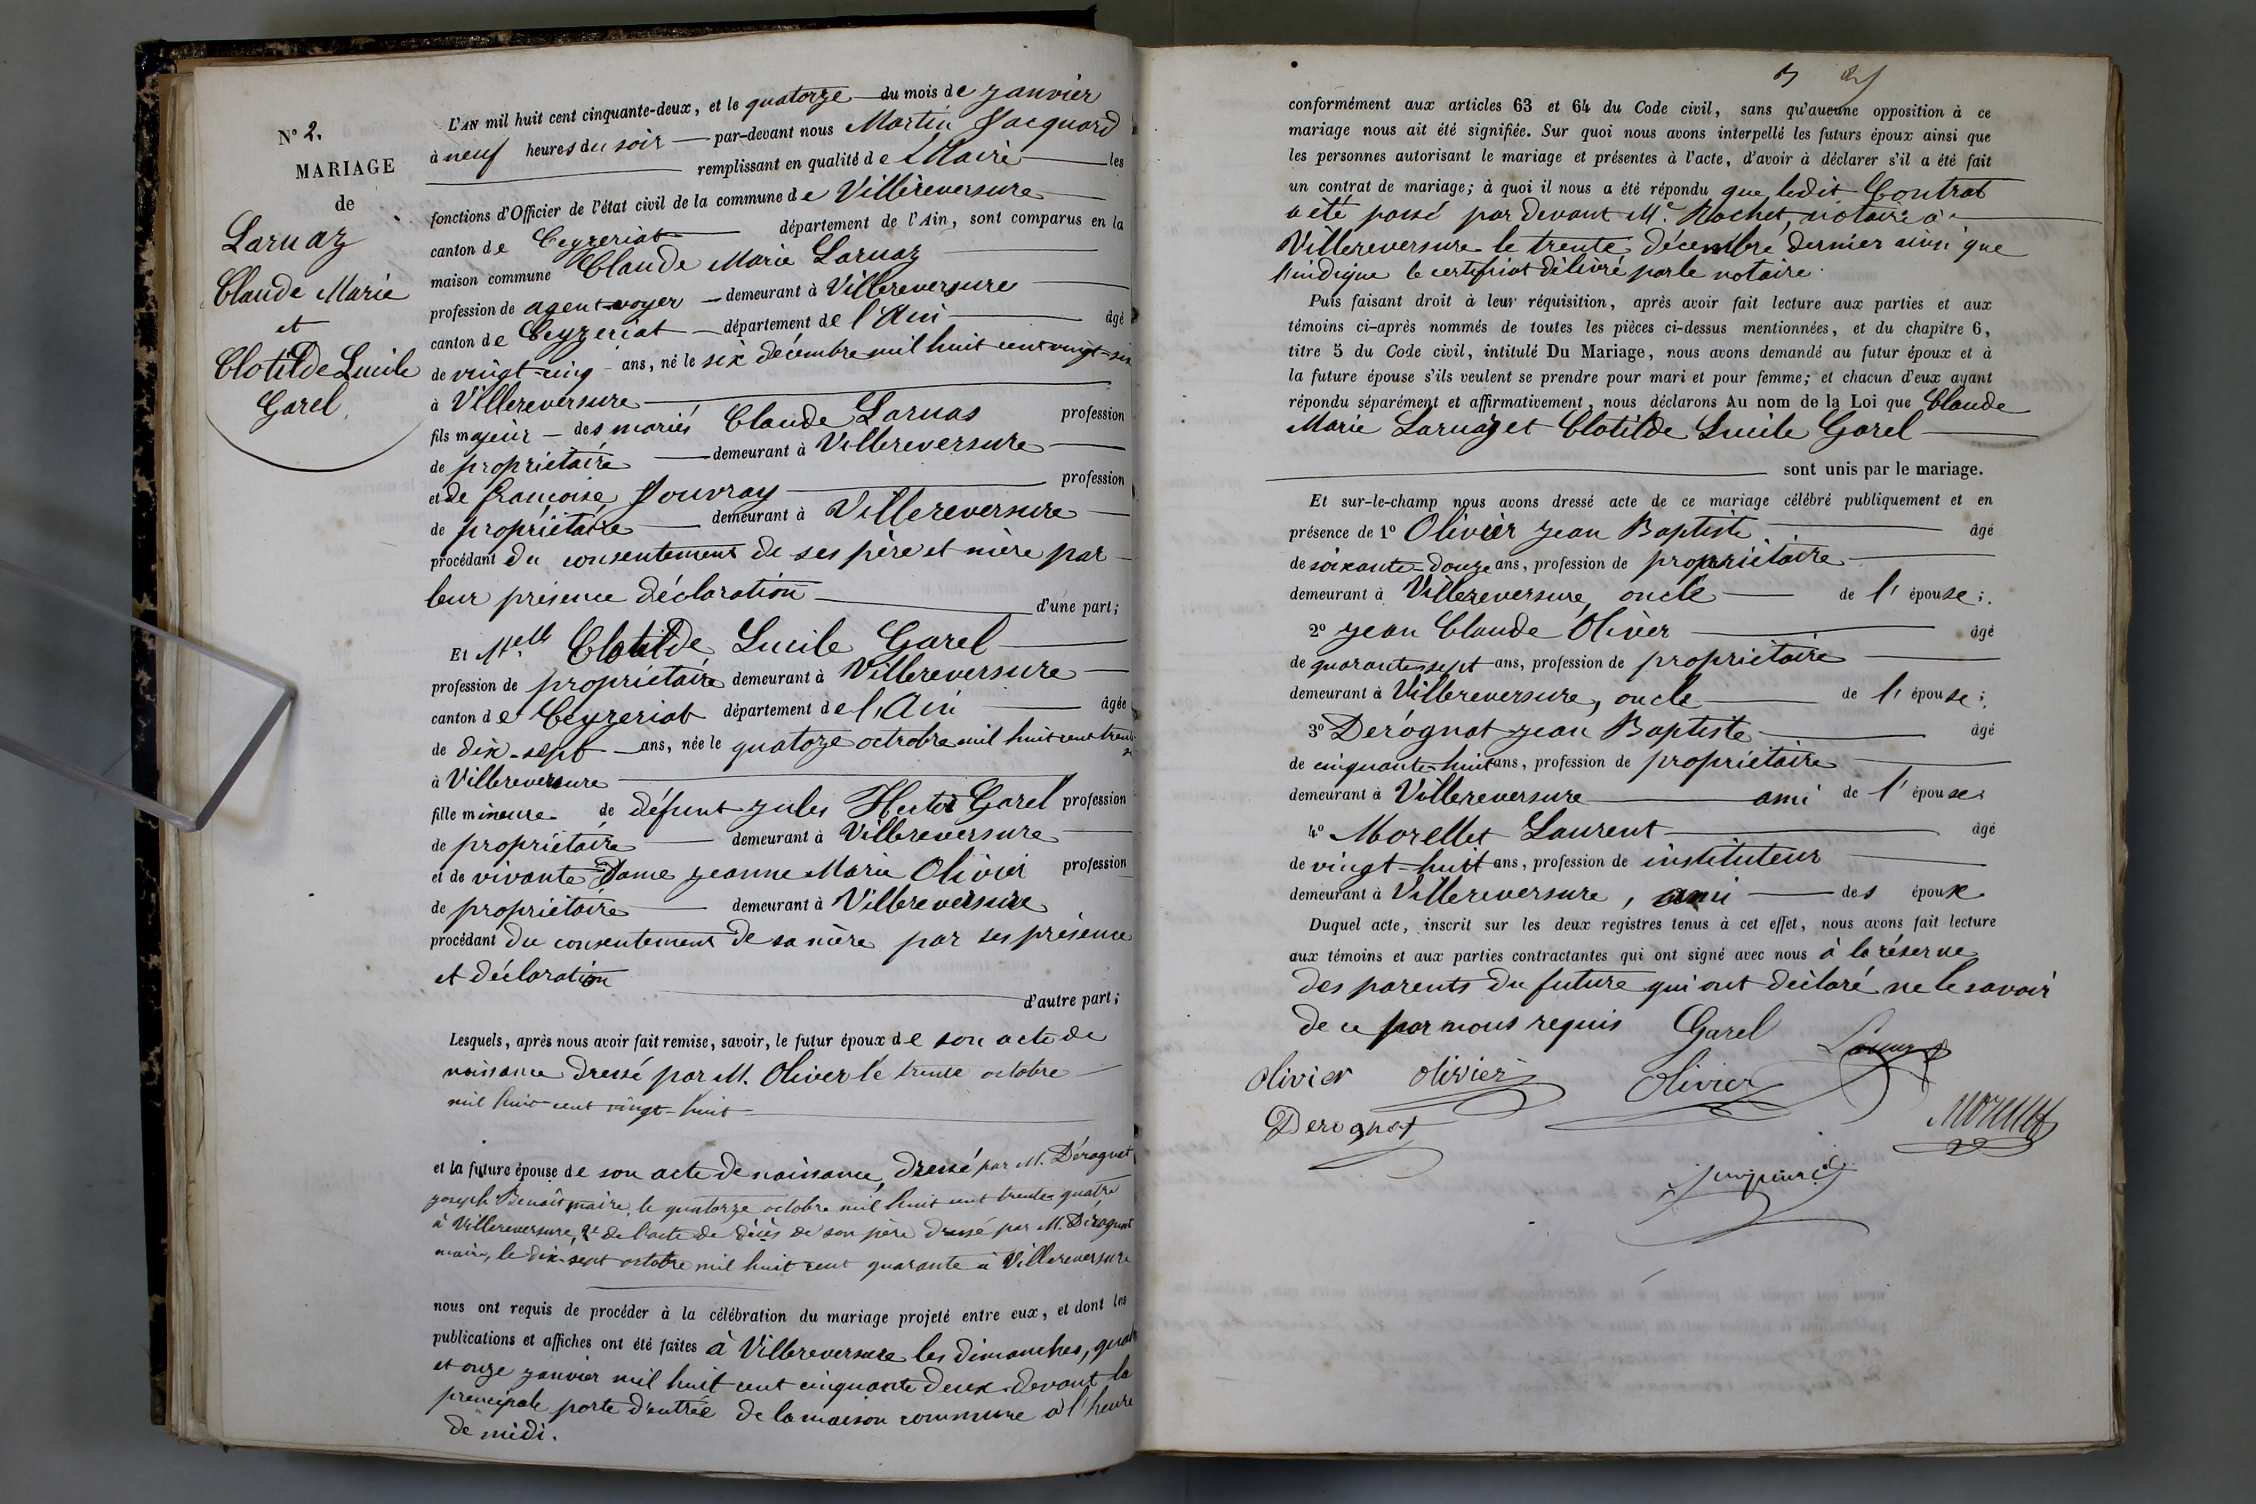 N° 2.
MARIAGE
de
Larnaz
Claude Marie
et
Clotilde Lucile
Garel.
L'AN mil huit cent cinquante-deux, et le quatorze du mois de janvier
à neuf heures du soir par-devant nous Martin Jacquard
remplissant en qualité de Maire les
fonctions d'Officier de l'état civil de la commune de Villereversure
canton de Ceyzeriat département de l'Ain, sont comparus en la
maison commune Claude Marie Larnaz
profession de agent-voyer demeurant à Villereversure
canton de Ceyzeriat département de l'Ain âgé
de vingt-cinq ans, né le six décembre mil huit cent vingt-six
à Villereversure
fils majeur des mariés Claude Larnas profession
de propriétaire demeurant à Villereversure
et de françoise Jouvray profession
de propriétaire demeurant à Villereversure
procédant du consentement de ses père et mère par
leur présence déclaration d'une part;
Et Melle Clotilde Lucile Garel
profession de propriétaire demeurant à Villereversure
canton de Ceyzeriat département de l'Ain âgée
de dix-sept ans, née le quatoze octrobre mil huit cent trente
à Villereversure
fille mineure de défunt jules Hector Garel profession
de propriétaire demeurant à Villereversure
et de vivante Dame jeanne Marie Olivier profession
de propriétaire demeurant à Villereversure
procédant du consentement de sa mère par ses présence
et déclaration
d'autre part;
Lesquels, après nous avoir fait remise, savoir, le futur époux de son acte de
naissance dressé par M. Oliver le trente octobre
mil huit cent vingt-huit
et la future épouse de son acte de naissance, dressé par M. Dérognat
joseph Benoît maire, le quatorze octobre mil huit cent trente quatre
à Villereversure, 2e de l'acte de décès de son père dressé par M. Dérognat
maire, le dix-sept octobre mil huit cent quarante à Villereversure
nous ont requis de procéder à la célébration du mariage projeté entre eux, et dont les
publications et affiches ont été faites à Villereversure les dimanches, quatre
et onze janvier mil huit cent cinquante deux devant la
principale porte d'entrée de la maison commune à l'heure
de midi.
conformément aux articles 63 et 64 du Code civil, sans qu'aucune opposition à ce
mariage nous ait été signifiée. Sur quoi nous avons interpellé les futurs époux ainsi que
les personnes autorisant le mariage et présentes à l'acte, d'avoir à déclarer s'il a été fait
un contrat de mariage; à quoi il nous a été répondu que ledit Contrat
a été passé par devant Me. Rochet, notaire à
Villereversure le trente décembre dernier ainsi que
l'indique le certificat délivré par le notaire.
Puis faisant droit à leur réquisition, après avoir fait lecture aux parties et aux
témoins ci-après nommés de toutes les pièces ci-dessus mentionnées, et du chapitre 6,
titre 5 du Code civil, intitulé Du Mariage, nous avons demandé au futur époux et à
la future épouse s'ils veulent se prendre pour mari et pour femme; et chacun d'eux ayant
répondu séparément et affirmativement, nous déclarons Au nom de la Loi que Claude
Marie Larnaz et Clotilde Lucile Garel
sont unis par le mariage.
Et sur-le-champ nous avons dressé acte de ce mariage célébré publiquement et en
présence de 1° Olivier jean Baptiste âgé
de soixante-douze ans, profession de propriétaire
demeurant à Villereversure, oncle de l'épouse;
2° jean Claude Olivier âgé
de quarante sept ans, profession de propriétaire
demeurant à Villereversure, oncle de l'épouse;
3° Dérognat jean Baptiste âgé
de cinquante-huit ans, profession de propriétaire
demeurant à Villereversure ami de l'épouse
4° Morellet Laurent âgé
de vingt-huit ans, profession de instituteur
demeurant à Villereversure, ami des époux
Duquel acte, inscrit sur les deux registres tenus à cet effet, nous avons fait lecture
aux témoins et aux parties contractantes qui ont signé avec nous à la réserve
des parents du future qui ont déclaré ne le savoir
de ce par nous requis Garel Larnaz
Olivier olivier Olivier
Derognat Morellet